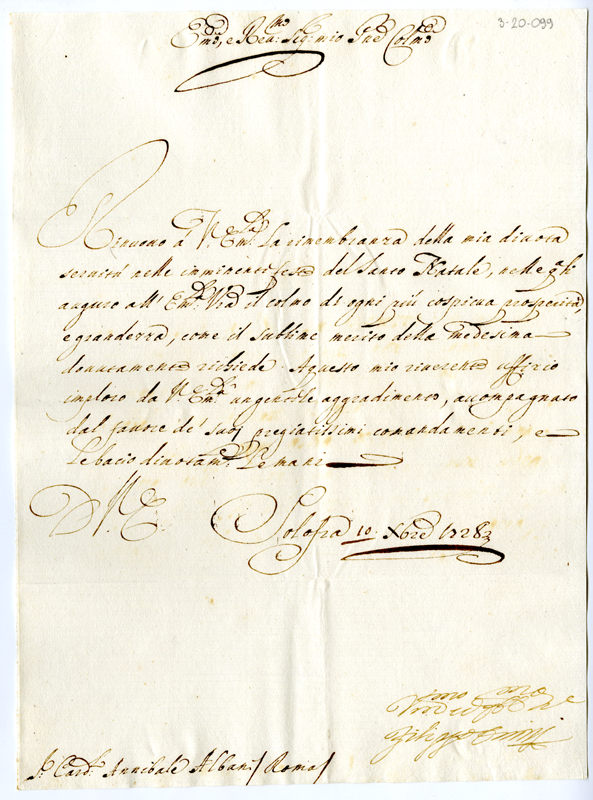 3-20-099
Em.o, e Rev.mo Sig.r mio P.rone Colmo
Rinuovo a V. Em.za La rimembranza della mia divota
servitù nelle imminenti feste del Santo Natale, nelle q.li
auguro all' Em.za V.ra il colmo di ogni più cospicua prosperità,
e grandezza, come il sublime merito della Medesima
douutamente richiede. A questo mio riverente uffizio
imploro da V. Em.za un gentile aggradimento, accompagnato
dal favore de' suoj pregiatissimi comandamenti, e
Le bacio divotam.te Le mani
D. V. E.
Solofra 10 Xbre 1728
Filippo
S.r Card.l Annibale Albani Roma